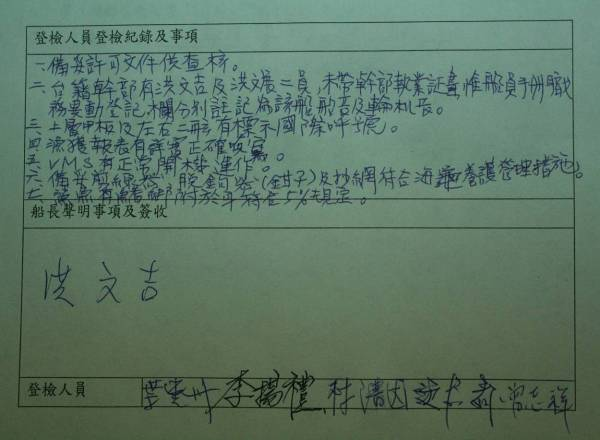 登檢人員登檢紀錄及事項
一、備妥許可文件供查核。
二、台籍幹部有洪文吉及洪文展二員,未帶幹部執業証書,惟船員手冊職
務異動登記欄分別註記為該船船長及輪机長。
三、上層甲板及左右二舷有標示國際呼號。
四、漁獲報表有詳實正確填寫。
五、VMS有正常開機運作。
六、備有剪線器、脫鉤器(鉗子)及抄網符合海龜養護管理措施。
七、鯊魚有鰭部附於身符合5%規定。
船長聲明事項及簽收
洪文吉
登檢人員 李揚禮 曾志祥